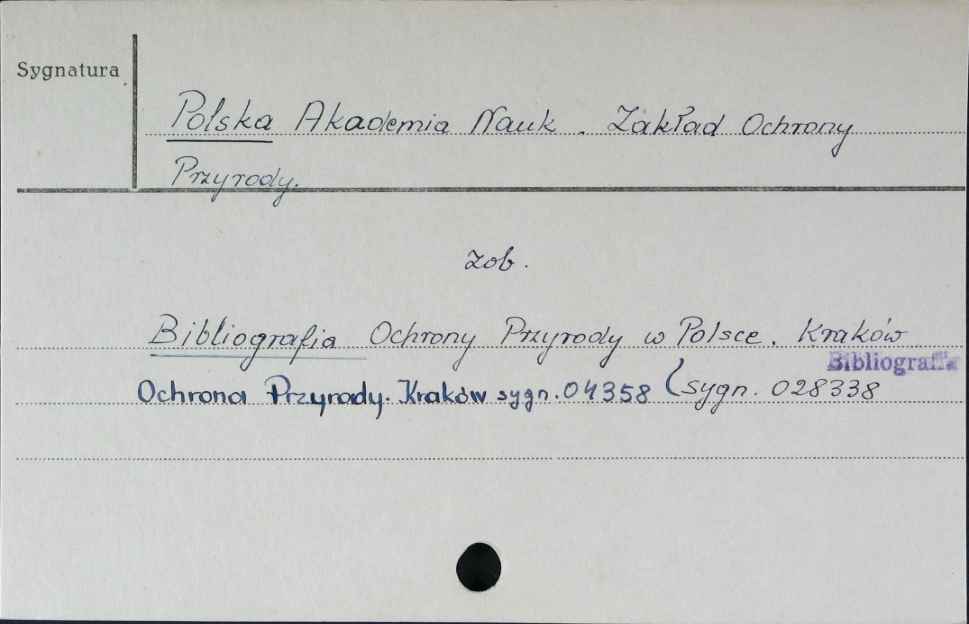 Sygnatura
Polska Akademia Nauk. Zakład Ochrony
Przyrody.
zob.
Bibliografia Ochrony Przyrody w Polsce. Kraków
Bibliografia
Ochrona Przyrody. Kraków sygn. 04358 (sygn. 028338